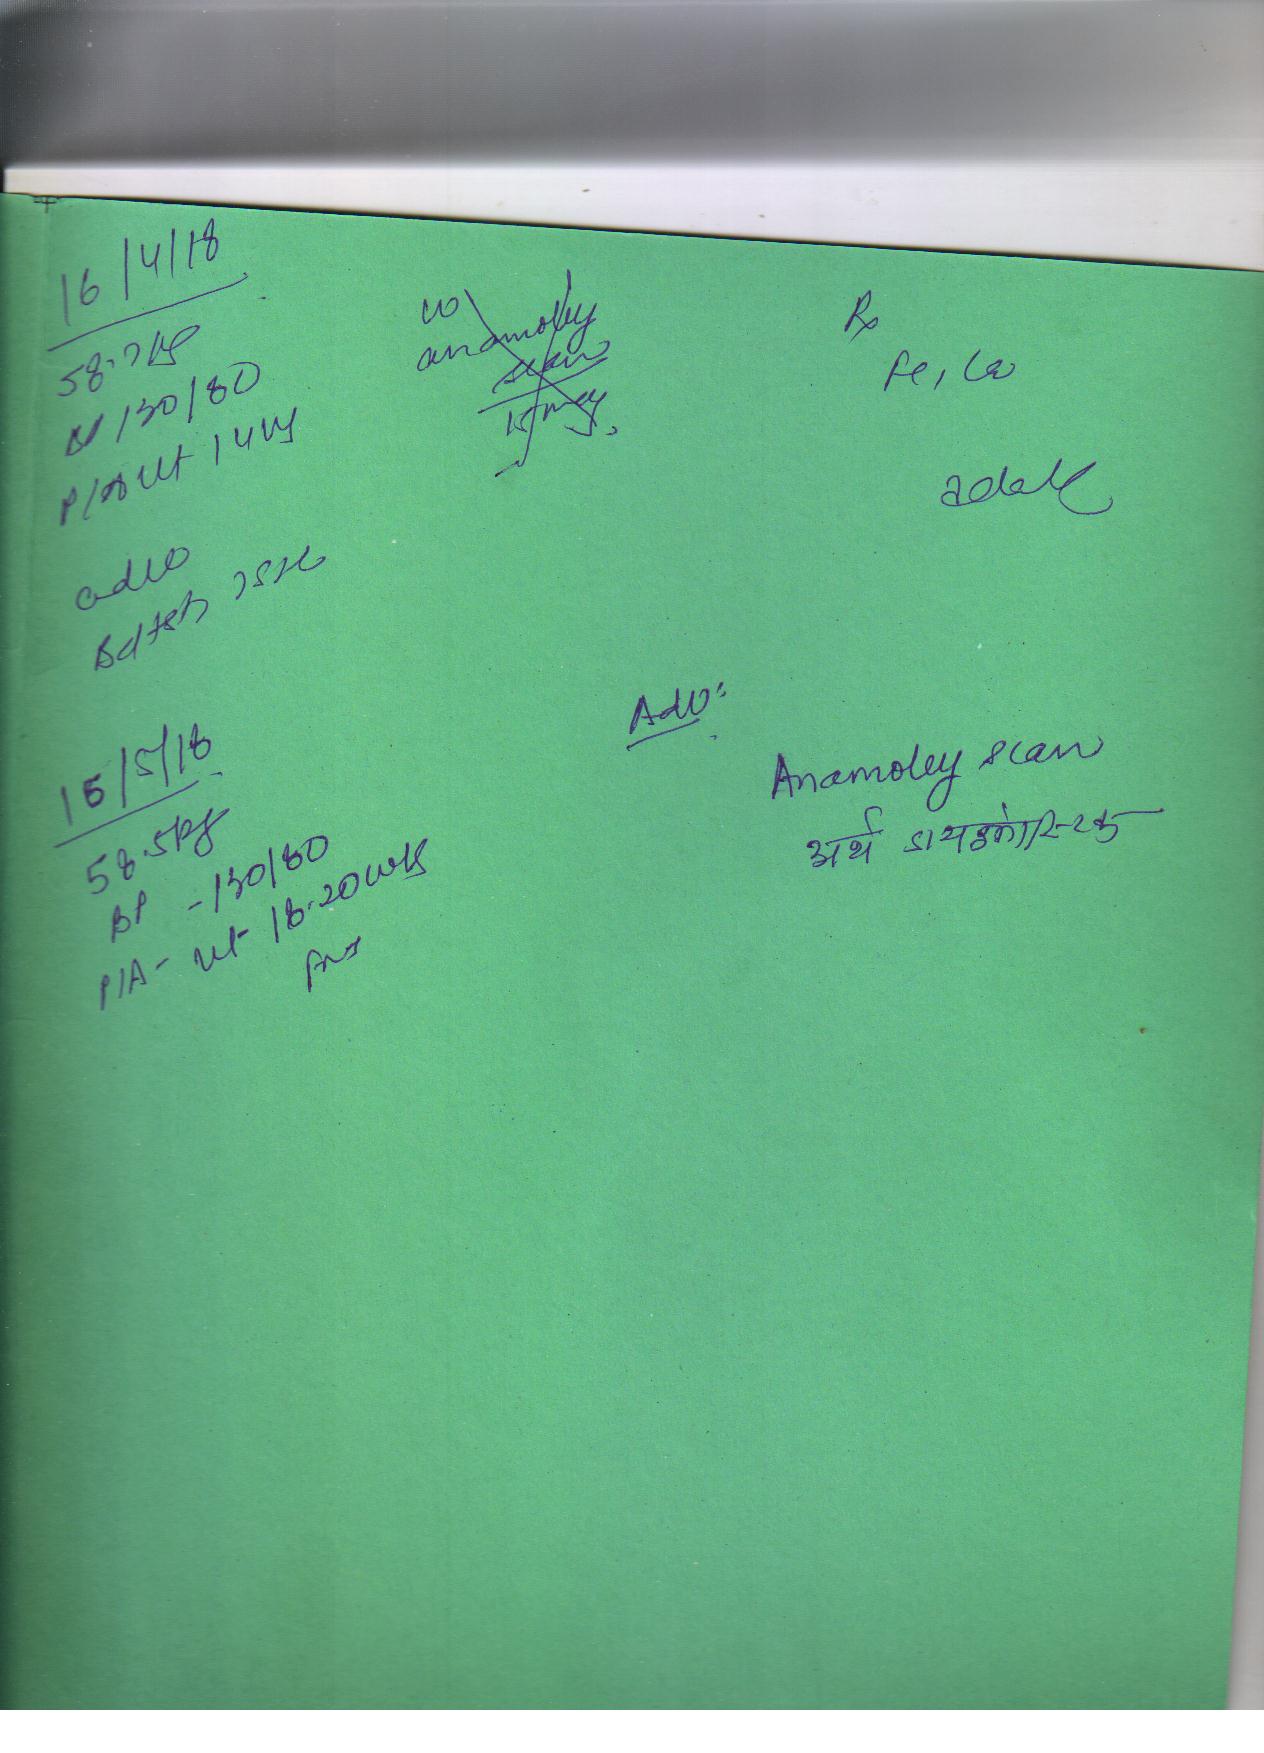 16/4/18
58.7kg
BP 130/80
P/A ut 14 wks
adv
anamoley
scan
15 may
Rx
Fe, Ca
15/5/18
58.5kg
BP - 130/80
P/A - ut 18-20 wks
Adv:
Anamoley scan
अर्थ डायग्नोस्टिक